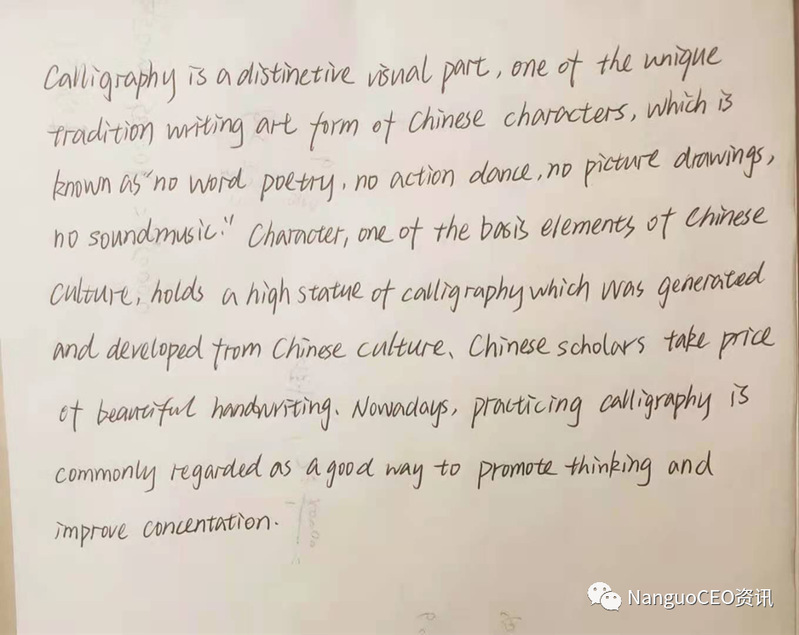 Calligraphy is a distinetive visual part, one of the unique
tradition writing art form of Chinese characters, which is
known as "no word poetry, no action dance, no picture drawings,
no soundmusic." Character, one of the basis elements of Chinese
culture, holds a high statue of calligraphy which was generated
and developed from Chinese culture. Chinese scholars take price
of beautiful handwriting. Nowadays, practicing calligraphy is
commonly regarded as a good way to promote thinking and
improve concentation.
NanguoCEO资讯